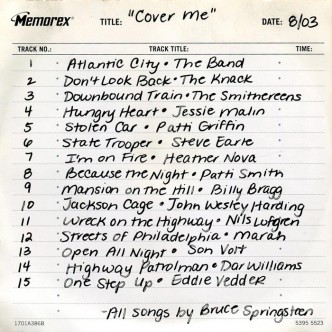 Memorex TITLE: "Cover me" DATE: 8/03
TRACK NO.: TRACK TITLE: TIME:
1 Atlantic City • The Band
2 Don't Look Back • The Knack
3 Downbound Train • The Smithereens
4 Hungry Heart • Jessie Malin
5 Stolen Car • Patti Griffin
6 State Trooper • Steve Earle
7 I'm on Fire • Heather Nova
8 Because the Night • Patti Smith
9 Mansion on the Hill • Billy Bragg
10 Jackson Cage • John Wesley Harding
11 Wreck on the Highway • Nils Lofgren
12 Streets of Philadelphia • Marah
13 Open All Night • Son Volt
14 Highway Patrolman • Dar Williams
15 One Step Up • Eddie Vedder
All songs by Bruce Springsteen
1701A386B 5395 5523